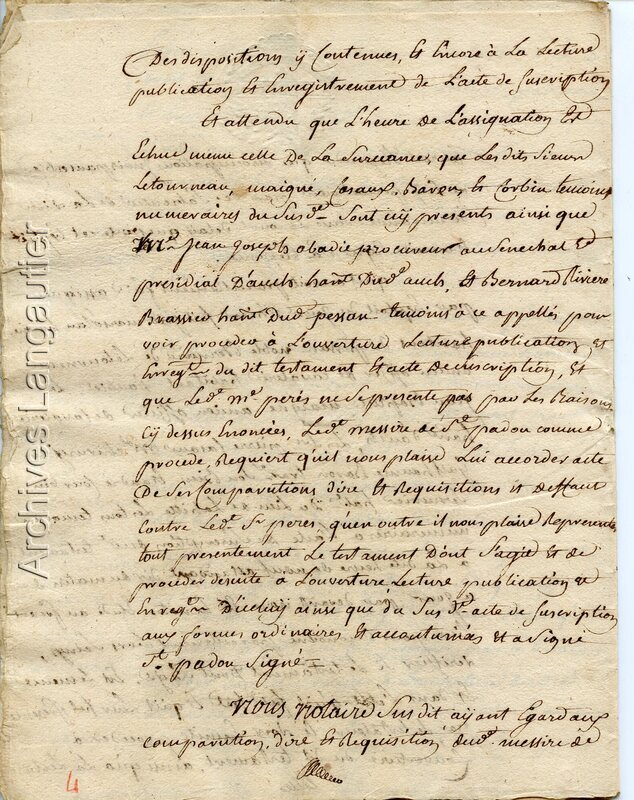 Des dispositions ÿ Contenues, Et Encore à La Lecture
publication Et Enregistrement de L'acte de Suscription
Et attendu que L'heure de L'assignation Est
Echue meme celle De La Surceance, que Les dits Sieurs
Letourneau, maigné, Casaux, Baren, Et Corbin temoins
numeraires du Susd.t Sont icÿ presents ainsi que
M.e Jean Joseph abadie procureur au Senechal Et
presidial D'auch han.t Dud.t auch, Et Bernard Riviere
Brassier han.t Dud. pessan temoins a ce appellés pour
voir proceder à L'ouverture Lecture publication, Et
Enreg.m du dit testament Et acte de suscription, Et
que Led.t m.e perés ne Se presente pas par Les Raisons
Cÿ dessus Enoncées, Led.t messire de S.t padou comme
procede, Requiert qu'il nous plaise Lui accorder acte
De Ses Comparutions dire Et Requisitions et deffaut
Contre Led.t S.r peres, qu'en outre il nous plaise Representer
tout presentement Le testament D'ont S'agit Et de
proceder desuite a L'ouverture Lecture publication Et
Enreg.m D'icelui ainsi que du Sus d.t acte de Suscription
aux formes ordinaires Et accoutumées Et a Signé
S.t padou Signé
Nous Notaire Sus dit aÿant Egard aux
comparution, dire Et Requisition dud.t messire de
4
Archives Langautier